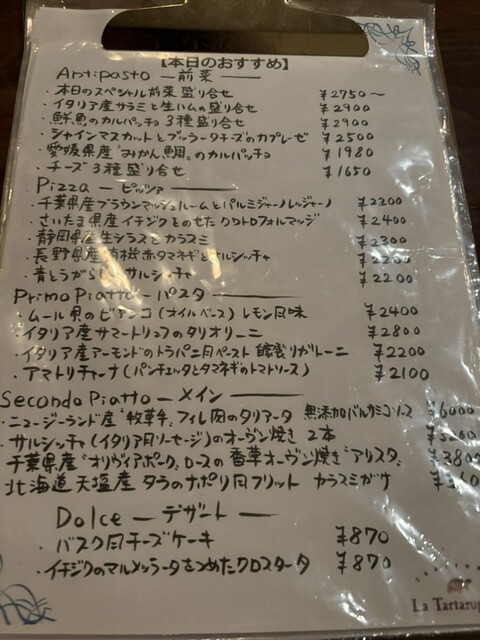 【本日のおすすめ】
Antipasto ー前菜ー
・本日のスペシャル前菜盛り合せ ¥2750〜
・イタリア産サラミと生ハムの盛り合せ ¥2900
・鮮魚のカルパッチョ 3種盛り合せ ¥2900
・シャインマスカットとブッラータチーズのカプレーゼ ¥2500
・愛媛県産"みかん鯛"のカルパッチョ ¥1980
・チーズ3種盛り合せ ¥1650
Pizza ーピッツァー
・千葉県産ブラウンマッシュルームとパルミジャーノレッジャーノ ¥2200
・さいたま県産イチジクをのせたクワトロフォルマッジ ¥2400
・静岡県産生シラスとカラスミ ¥2300
・長野県産 赤タマネギとサルシッチャ ¥2200
・青とうがらし サルシッチャ ¥2200
Primo Piatto ーパスターー
・ムール貝のビアンコ(オイルベース)レモン風味 ¥2400
・イタリア産サマートリュフのタリオリーニ ¥2800
・イタリア産アーモンドのトラパニ風ペースト 自家製リガトーニ ¥2200
・アマトリチャーナ(パンチェッタとタマネギのトマトソース) ¥2100
Secondo Piatto ーメイン
・ニュージーランド産"牧草牛"フィレ肉のタリアータ 無添加バルサミコソース ¥6000
・サルシッチャ(イタリア風ソーセージ)のオーブン焼き 2本
千葉県産"オリヴィアポーク"ロースの香草オーヴン焼き"アリスタ" ¥3800
北海道天塩産 タラのナポリ風フリット カラスミがけ
Dolce ーデザートー
・バスク風チーズケーキ ¥870
・イチジクのマルメッラータをつめたクロスタータ ¥870
La Tartarug